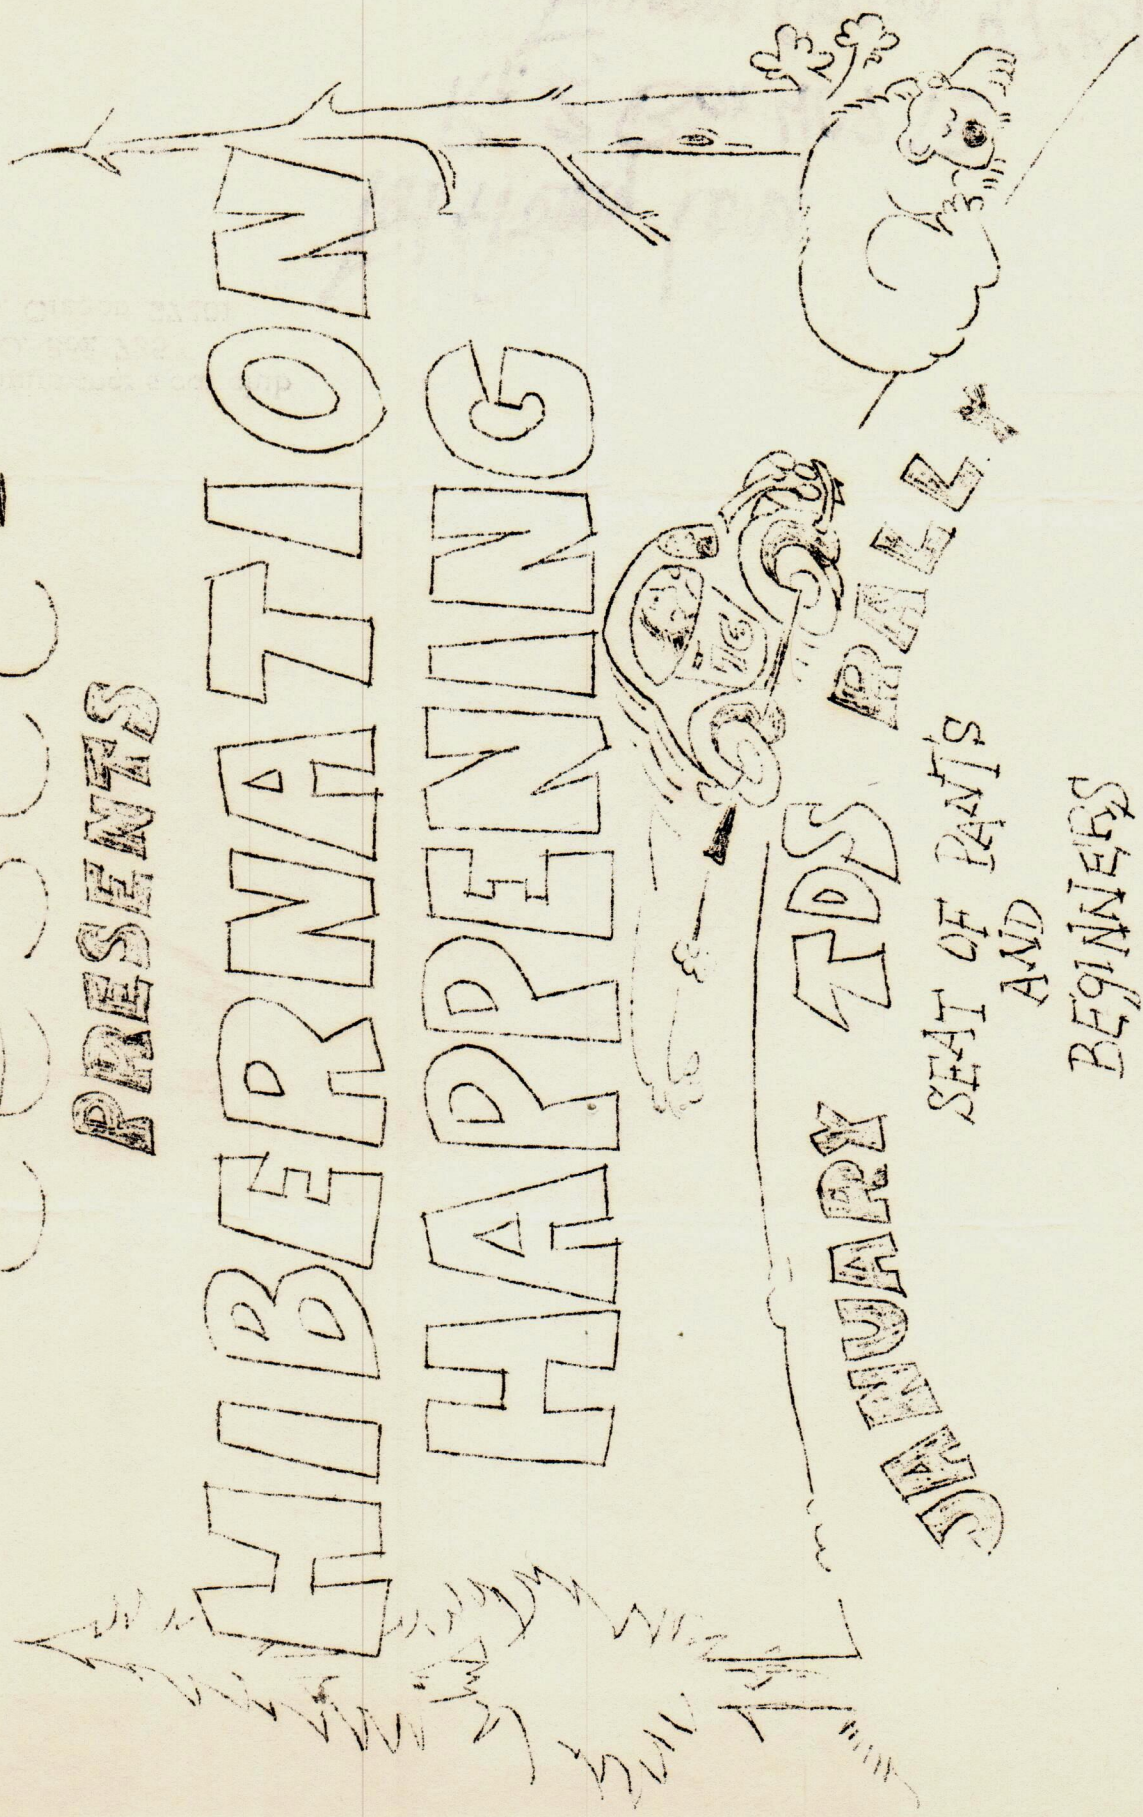 PRESENTS
HIBERNATION
HAPPENING
76
JANUARY TDS RALLY
SEAT OF PANT'S
AND
BEGINNERS